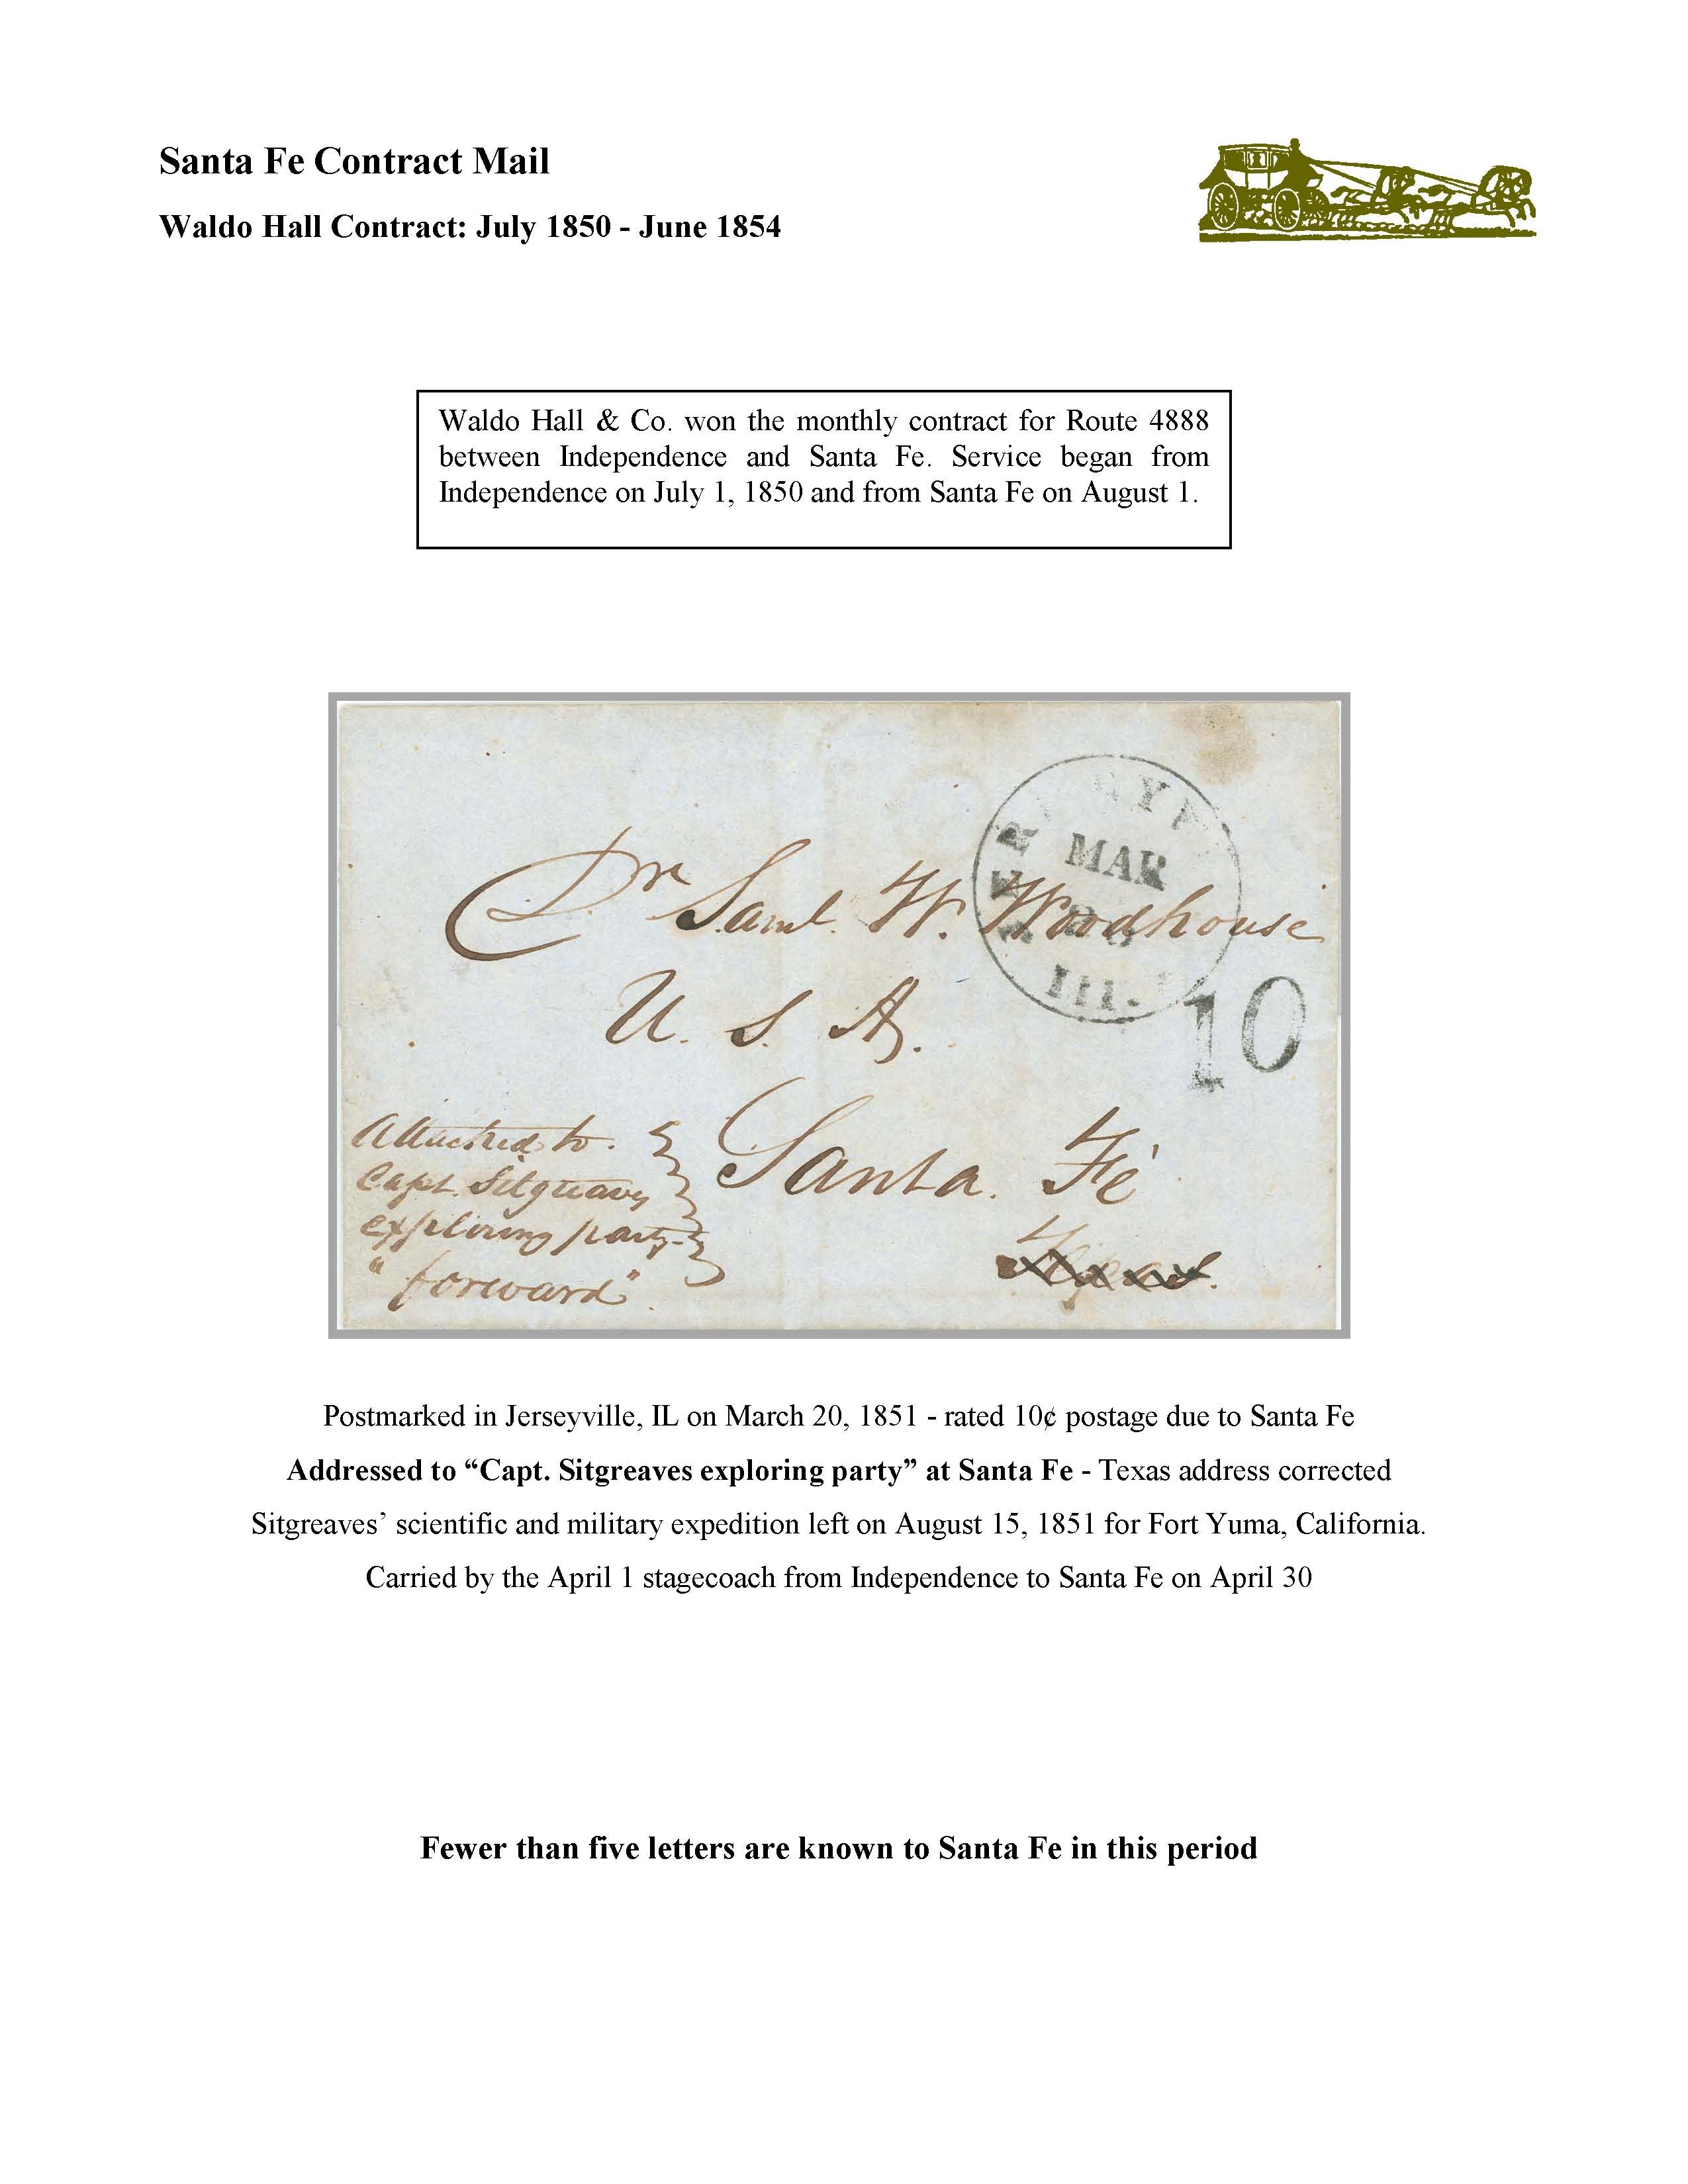 Santa Fe Contract Mail
Waldo Hall Contract: July 1850 - June 1854
Waldo Hall & Co. won the monthly contract for Route 4888
between Independence and Santa Fe. Service began from
Independence on July 1, 1850 and from Santa Fe on August 1.
MAR
Ill.
Dr Saml. W. Woodhouse
U. S. A.
10
Attached to.
Capt. Sitgreaves
exploring party
"forward".
Santa. Fé
Texas.
Postmarked in Jerseyville, IL on March 20, 1851 - rated 10¢ postage due to Santa Fe
Addressed to “Capt. Sitgreaves exploring party” at Santa Fe - Texas address corrected
Sitgreaves’ scientific and military expedition left on August 15, 1851 for Fort Yuma, California.
Carried by the April 1 stagecoach from Independence to Santa Fe on April 30
Fewer than five letters are known to Santa Fe in this period